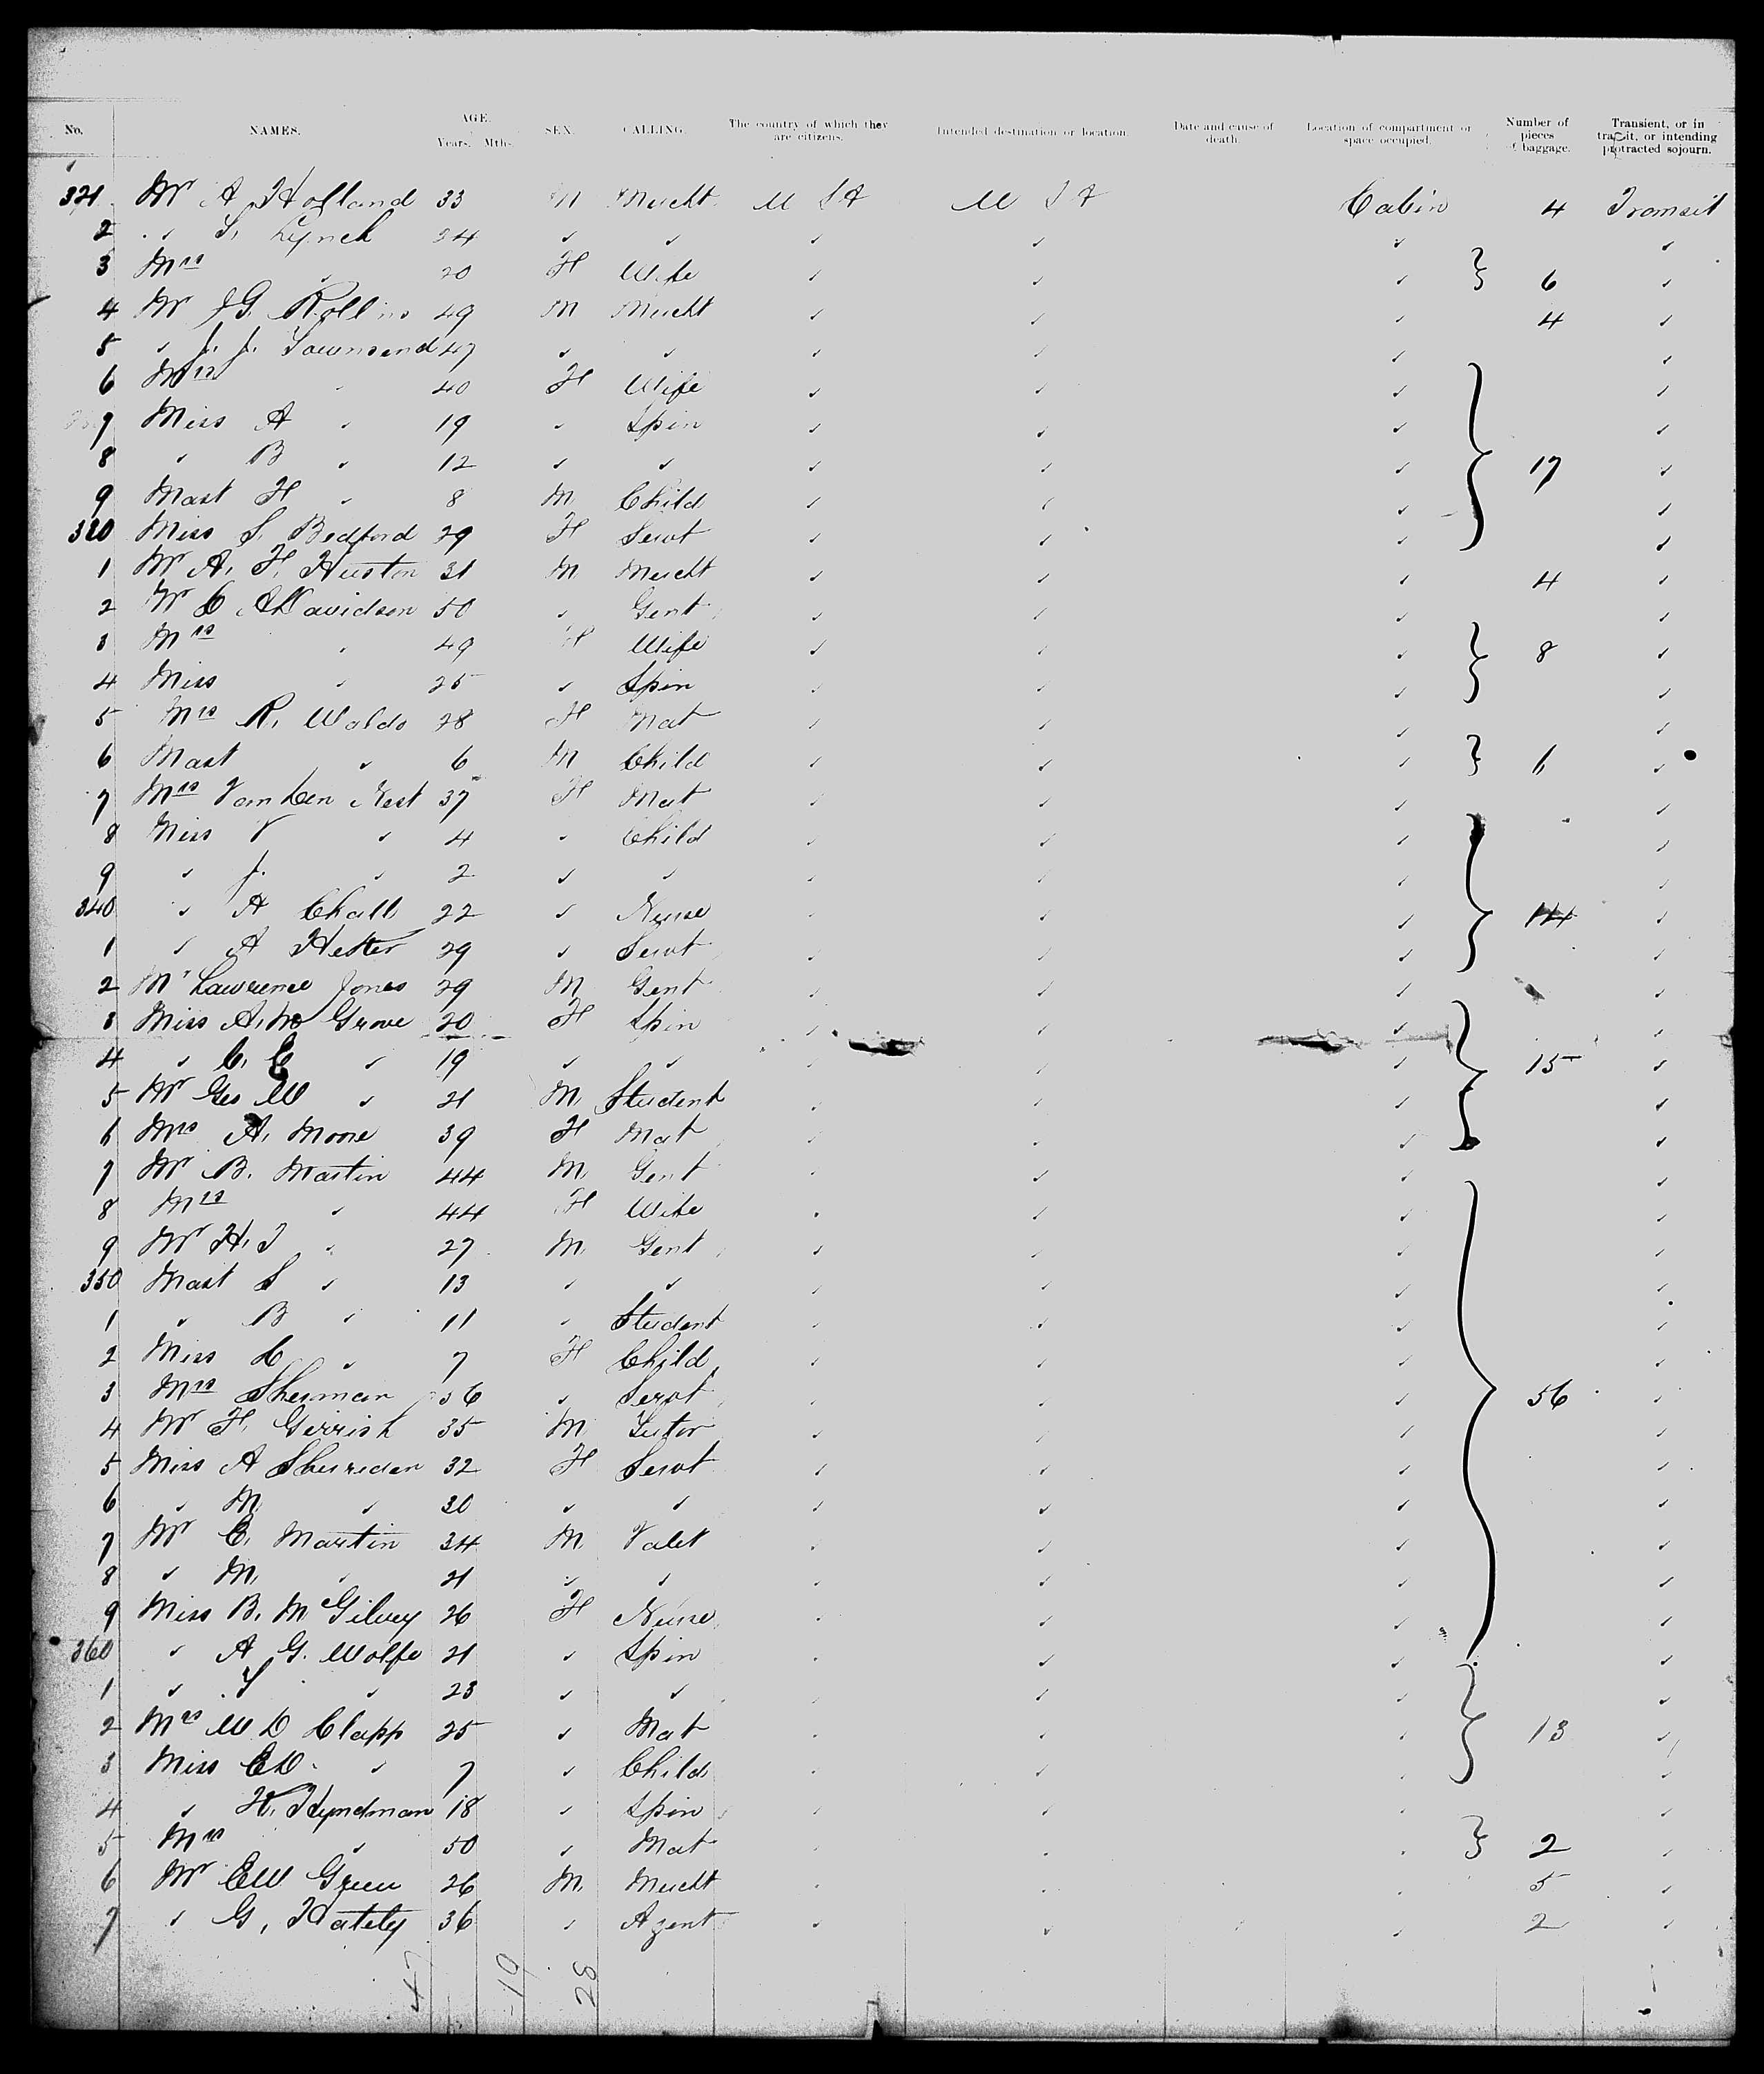 No. NAMES. AGE. Years. Mths. SEX. CALLING. The country of which they are citizens. Intended destination or location. Date and cause of death. Location of compartment or space occupied. Number of pieces of baggage. Transient, or in transit, or intending protracted sojourn.
321 Mr A Holland 33 M Mercht U S A U S A Cabin 4 Transit
2 " S. Lynch 24 " " " " " "
3 Mrs " 20 F Wife " " " } 6 "
4 Mr J G. Rollins 49 M Mercht " " " 4 "
5 " J. J. Townsend 47 " " " " " "
6 Mrs " 40 F Wife " " " "
7 Miss A " 19 " Spin " " " "
8 " B " 12 " " " " " } 17 "
9 Mast H " 8 M Child " " " "
330 Miss S. Bedford 29 F Servt " " " "
1 Mr A. F. Huston 31 M Mercht " " " 4 "
2 Mr C A Davidson 50 " Gent " " " "
3 Mrs " 49 F Wife " " " } 8 "
4 Miss " 25 " Spin " " " "
5 Mrs R. Waldo 28 F Mat " " " "
6 Mast " 6 M Child " " " } 6 "
7 Mrs Van Den Nest 37 F Mat " " " "
8 Miss V " 4 " Child " " " "
9 " J. " 2 " " " " " "
340 " A Chall 22 " Nurse " " " } 14 "
1 " A Hester 29 " Servt " " " "
2 Mr Lawrence Jones 29 M Gent " " " "
3 Miss A. M Grove 20 F Spin " " " "
4 " C. E " 19 " " " " " } 15 "
5 Mr Geo W " 21 M Student " " " "
6 Mrs A. Moore 39 F Mat " " " "
7 Mr B. Martin 44 M Gent " " " "
8 Mrs " 44 F Wife " " " "
9 Mr H. T " 27 M Gent " " " "
350 Mast S " 13 " " " " " "
1 " B " 11 " Student " " " "
2 Miss C " 7 F Child " " " "
3 Mrs Sherman 36 " Servt " " " } 56 "
4 Mr F. Gerrish 35 M Tutor " " " "
5 Miss A Sherridan 32 F Servt " " " "
6 " M " 30 " " " " " "
7 Mr E. Martin 34 M Valet " " " "
8 " M. " 21 " " " " " "
9 Miss B. McGilvey 26 F Nurse " " " "
360 " A G. Wolfe 21 " Spin " " " "
1 " S " 23 " " " " " "
2 Mrs W D Clapp 25 " Mat " " " } 13 "
3 Miss E D. " 7 " Child " " " "
4 " H. Hyndman 18 " Spin " " " "
5 Mrs " 50 " Mat " " " } 2 "
6 Mr E W Green 26 M Mercht " " " 5 "
7 " G. Hately 36 " Agent " " " 2 "
47 19 28